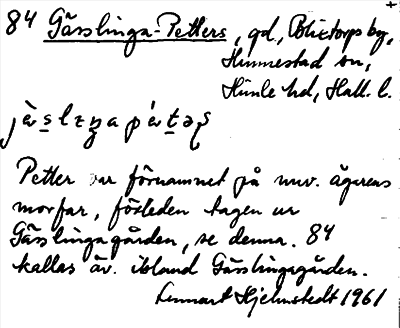 84 Gässlinga-Petters, gd., Blixtorps by,
Hunnestad sn,
Himle hd, Hall. l.
Petter är förnamnet på nuv. ägarens
morfar, förleden tagen ur
Gässlingagården, se denna. 84
kallas äv. ibland Gässlingagården.
Lennart Hjelmstedt 1961